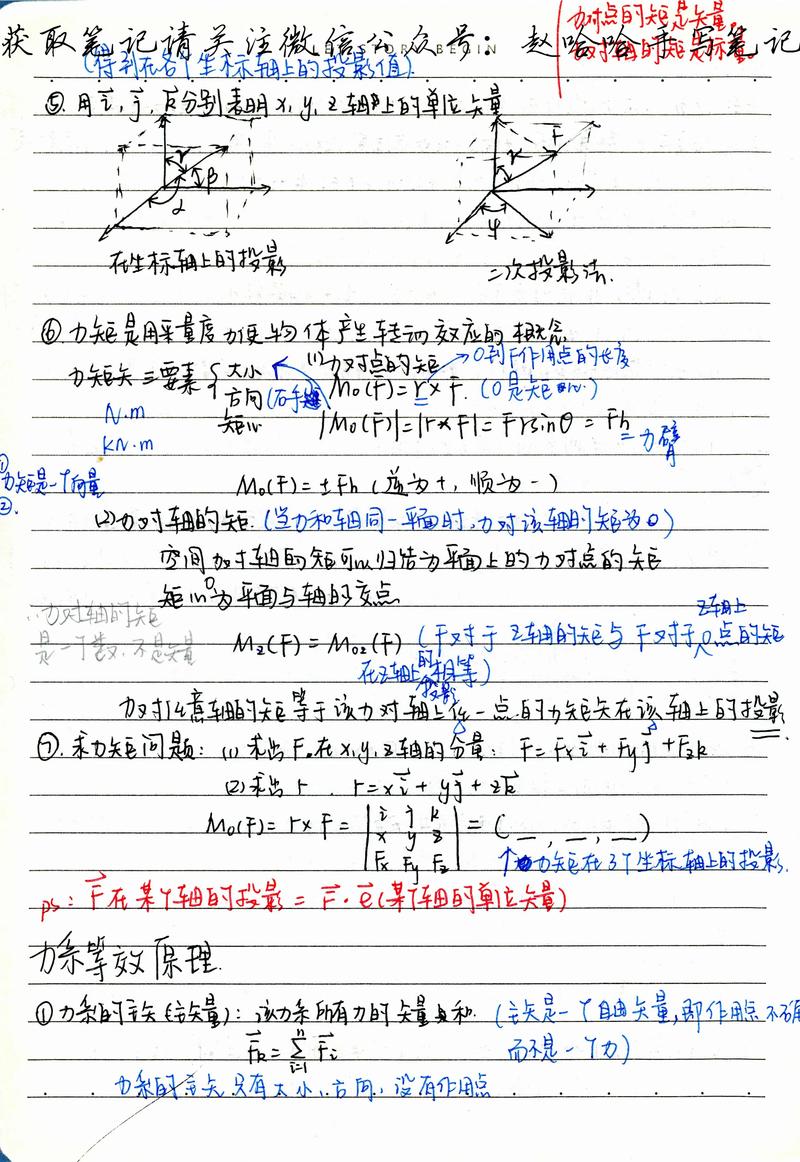 力对点的矩是矢量,
力对轴的矩是标量.
获取笔记请关注微信公众号: 赵哈哈手写笔记
(得到在各个坐标轴上的投影值)
⑤. 用i, j, k分别表明 x, y, z 轴上的单位矢量
γ β α
γ F φ
在坐标轴上的投影
二次投影法.
⑥ 力矩是用来量度力使物体产生转动效应的概念
(1) 力对点的矩 O到F作用点的长度
力矩矢三要素 { 大小 方向 (右手 矩心
M₀(F) = r × F. (O是矩心.)
N·m
|M₀(F)| = |r × F| = Frsinθ = Fh
kN·m
= 力臂
① 力矩是一个向量
②.
M₀(F) = ±Fh (逆为+, 顺为-)
(2) 力对轴的矩. (当力和轴同一平面时, 力对该轴的矩为0)
空间力对轴的矩可以归结为平面上的力对点的矩
矩心O为平面与轴的交点
∴力对轴的矩
是一个数. 不是矢量
z轴上
Mz(F) = Moz(F) (F对于z轴的矩与F对于O点的矩
在z轴上的投影相等)
力对任意轴的矩等于该力对轴上任一点的力矩矢在该轴上的投影
⑦. 求力矩问题: (1) 求出F在x, y, z轴的分量: F = Fxi + Fyj + Fzk
(2) 求出 r . r = xi + yj + zk
M₀(F) = r × F = | i j k
x y z
Fx Fy Fz | = ( _ , _ , _ )
↑力矩在3个坐标轴上的投影.
ps: F在某个轴的投影 = F · e (某个轴的单位矢量)
力系等效原理.
① 力系的主矢(主矢量): 该力系所有力的矢量和. (主矢是一个自由矢量, 即作用点不确
F_R = Σ(i=1, n) Fi 而不是一个力)
力系的主矢只有大小, 方向, 没有作用点